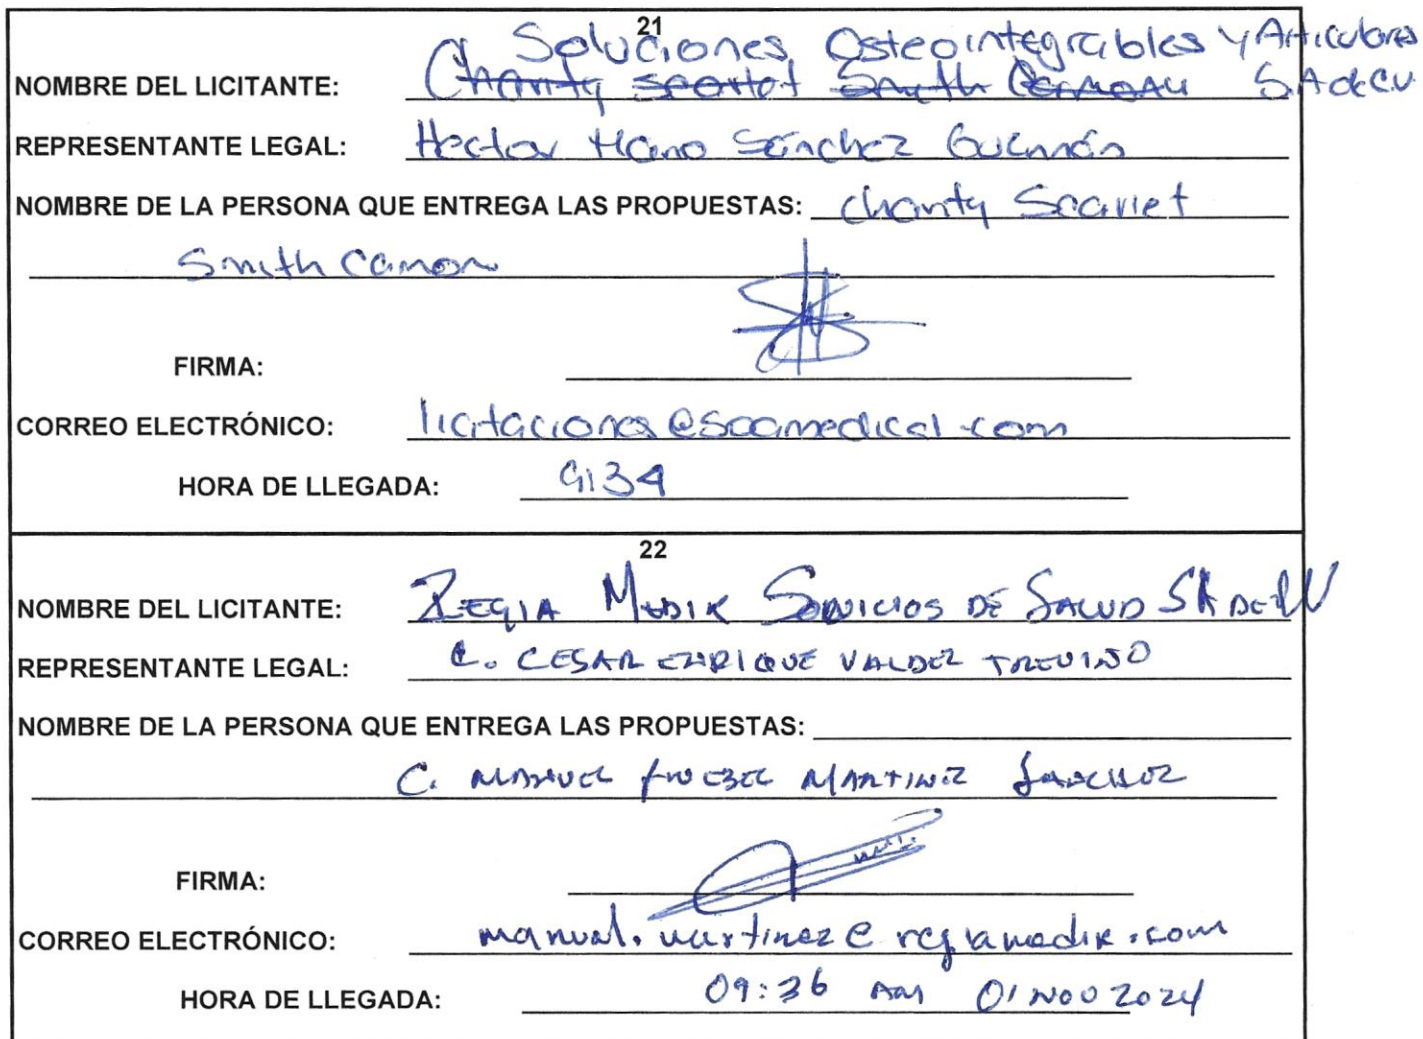 21
Soluciones Osteointegrables y Articulares
NOMBRE DEL LICITANTE: Charity Scarlet Smith S.A de C.V.
REPRESENTANTE LEGAL: Hector Mario Sánchez Guzmán
NOMBRE DE LA PERSONA QUE ENTREGA LAS PROPUESTAS: Charity Scarlet
Smith Camon
FIRMA:
CORREO ELECTRÓNICO: licitaciones@soamedical.com
HORA DE LLEGADA: 9:34
22
NOMBRE DEL LICITANTE: REGIA MEDIK SERVICIOS DE SALUD SA DE CV
REPRESENTANTE LEGAL: C. CESAR ENRIQUE VALDEZ TREVINO
NOMBRE DE LA PERSONA QUE ENTREGA LAS PROPUESTAS:
C. MANUEL MARTINEZ SANCHEZ
FIRMA:
CORREO ELECTRÓNICO: manuel.martinez@regiamedik.com
HORA DE LLEGADA: 09:36 AM 01 NOV 2024